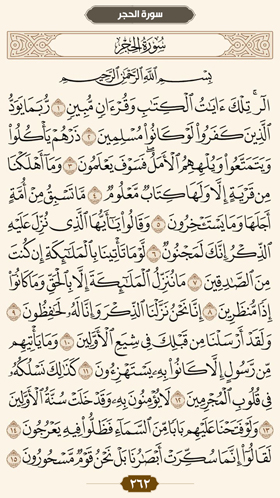 سورة الحجر
سُورَةُ الحِجْرِ
بِسْمِ اللَّهِ الرَّحْمَٰنِ الرَّحِيمِ
الٓرۚ تِلْكَ ءَايَٰتُ ٱلْكِتَٰبِ وَقُرْءَانٍ مُّبِينٍ ١ رُّبَمَا يَوَدُّ
ٱلَّذِينَ كَفَرُوا۟ لَوْ كَانُوا۟ مُسْلِمِينَ ٢ ذَرْهُمْ يَأْكُلُوا۟
وَيَتَمَتَّعُوا۟ وَيُلْهِهِمُ ٱلْأَمَلُۖ فَسَوْفَ يَعْلَمُونَ ٣ وَمَآ أَهْلَكْنَا
مِن قَرْيَةٍ إِلَّا وَلَهَا كِتَابٌ مَّعْلُومٌ ٤ مَّا تَسْبِقُ مِنْ أُمَّةٍ
أَجَلَهَا وَمَا يَسْتَـْٔخِرُونَ ٥ وَقَالُوا۟ يَٰٓأَيُّهَا ٱلَّذِى نُزِّلَ عَلَيْهِ
ٱلذِّكْرُ إِنَّكَ لَمَجْنُونٌ ٦ لَّوْ مَا تَأْتِينَا بِٱلْمَلَٰٓئِكَةِ إِن كُنتَ
مِنَ ٱلصَّٰدِقِينَ ٧ مَا نُنَزِّلُ ٱلْمَلَٰٓئِكَةَ إِلَّا بِٱلْحَقِّ وَمَا كَانُوٓا۟
إِذًا مُّنظَرِينَ ٨ إِنَّا نَحْنُ نَزَّلْنَا ٱلذِّكْرَ وَإِنَّا لَهُۥ لَحَٰفِظُونَ ٩
وَلَقَدْ أَرْسَلْنَا مِن قَبْلِكَ فِى شِيَعِ ٱلْأَوَّلِينَ ١٠ وَمَا يَأْتِيهِم
مِّن رَّسُولٍ إِلَّا كَانُوا۟ بِهِۦ يَسْتَهْزِءُونَ ١١ كَذَٰلِكَ نَسْلُكُهُۥ
فِى قُلُوبِ ٱلْمُجْرِمِينَ ١٢ لَا يُؤْمِنُونَ بِهِۦ وَقَدْ خَلَتْ سُنَّةُ ٱلْأَوَّلِينَ
١٣ وَلَوْ فَتَحْنَا عَلَيْهِم بَابًا مِّنَ ٱلسَّمَآءِ فَظَلُّوا۟ فِيهِ يَعْرُجُونَ ١٤
لَقَالُوٓا۟ إِنَّمَا سُكِّرَتْ أَبْصَٰرُنَا بَلْ نَحْنُ قَوْمٌ مَّسْحُورُونَ ١٥
٢٦٢